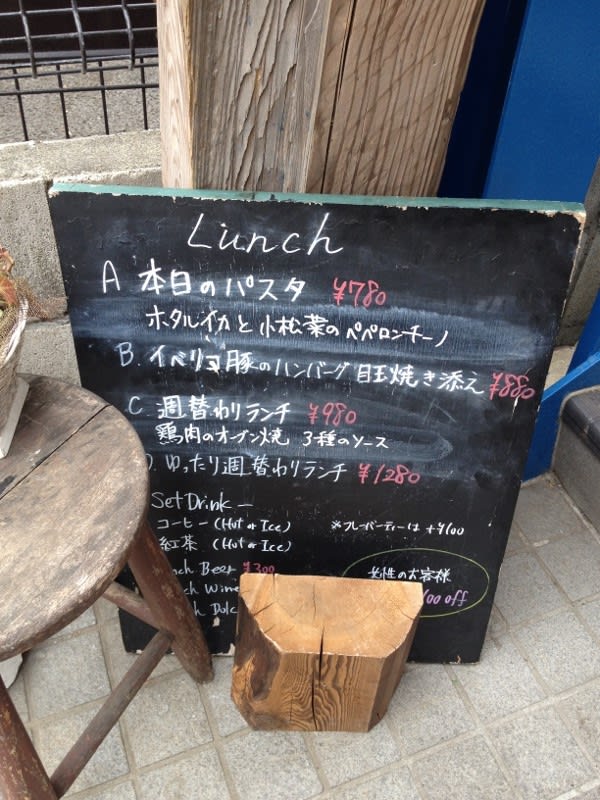 Lunch
A 本日のパスタ ¥780
ホタルイカと小松菜のペペロンチーノ
B. イベリコ豚のハンバーグ 目玉焼き添え ¥880
C 週替わりランチ ¥980
鶏肉のオーブン焼 3種のソース
D. ゆったり週替わりランチ ¥1280
Set Drink
コーヒー (Hot or Ice) ※フレーバーティーは +¥100
紅茶 (Hot or Ice)
Beer ¥300
女性のお客様
off